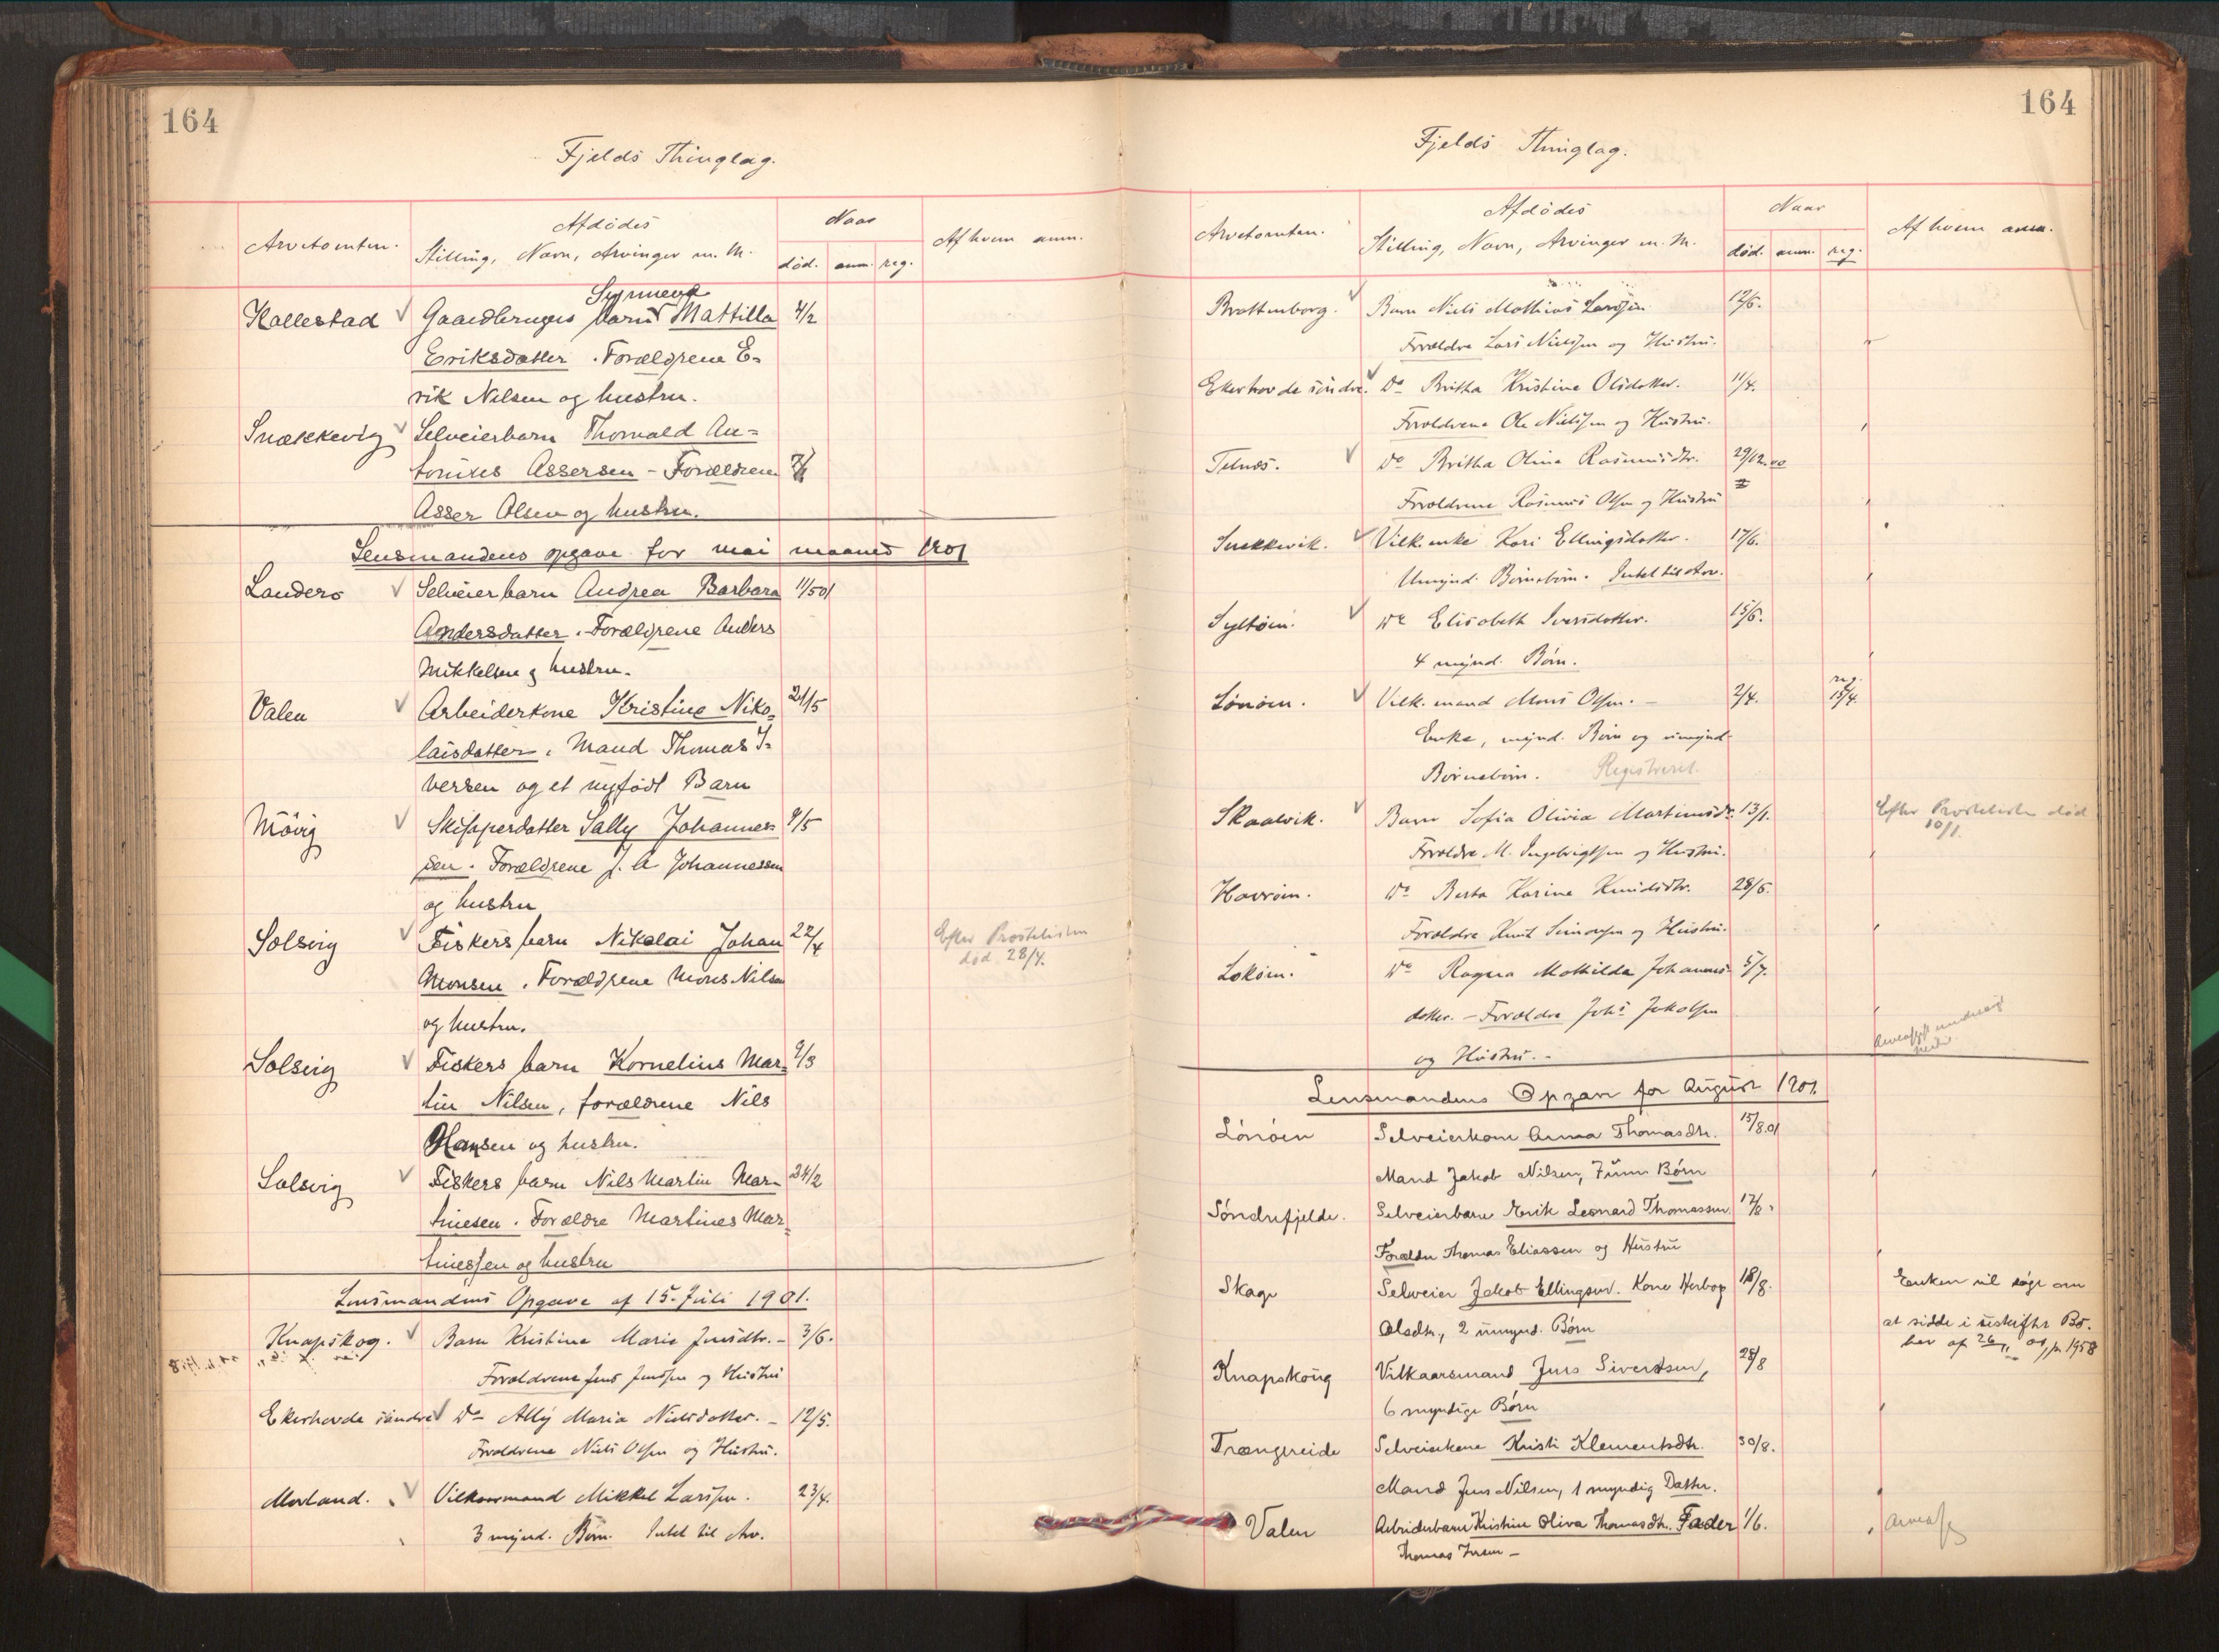 164
Fjelds Thinglag.
Arvetomten. Afdødes Stilling, Navn, Arvinger m. M. Naar død. anm. reg. Af hvem anm.
Synneva
Kallestad Gaardbrugers barn Mattilla 4/2
Eriksdatter. Forældrene E-
rik Nelsen og hustru.
Snækkevig Selveierbarn Thorvald An-
tonius Assersen - Forældrene
Asser Olsen og hustru.
Lensmandens opgave for mai maaned 1901
Landero Selveierbarn Andrea Barbara 11/5 01
Andersdatter. Forældrene Anders
Mikkelsen og hustru.
Valen Arbeiderkone Kristine Niko- 21/5
laisdatter. Mand Thomas I-
versen og et nyfødt Barn
Møvig Skipperdatter Sally Johannes- 9/5
sen. Forældrene J. A Johannessen
og hustru
Solsvig Fiskers barn Nikolai Johan 22/4 Efter Prostelisten
Monsen. Forældrene Mons Nilsen død 28/4.
og hustru.
Solsvig Fiskers barn Kornelius Mar- 9/3
tin Nilsen, forældrene Nils
Hansen og hustru.
Solsvig Fiskers barn Nils Martin Mar- 24/2
tinesen. Forældre Martines Mar-
tinessen og hustru
Lensmandens Opgave af 15. Juli 1901.
Knapskog. Barn Kristine Marie Jensdtr. - 3/6.
Forældrene Jens Jensen og Hustru
Ekerhovde søndre Do Ally Maria Nielsdatter. - 12/5.
Forældrene Niels Olsen og Hustru.
Morland. Vilkaarmand Mikkel Larssen. 23/4.
3 mynd. Børn. Intet til Arv.
164
Fjelds Thinglag.
Arvetomten. Afdødes Stilling, Navn, Arvinger m. M. Naar død. anm. reg. Af hvem anm.
Brattenborg. Barn Niels Mathias Larssen 12/6.
Forældre Lars Nielsen og Hustru.
Ekerhovde søndre. Do Britha Kristine Olsdatter. 11/4.
Forældrene Ole Nielssen og Hustru.
Telnæs. Do Britha Olina Rasmusdtr. 29/12.00
Forældrene Rasmus Olsen og Hustru
Snekkevik. Vilk.enke Kari Ellingsdatter. 17/6.
Umynd. Børnebørn. Intet til Arv.
Syltøen. Do Elisabeth Iversdatter. 15/6.
4 mynd. Børn.
Lønøen. Vilk. mand Mons Olsen. - 2/4. reg. 15/4.
Enke, mynd. Børn og umynd.
Børnebørn. Registreret.
Skaalvik. Barn Sofia Olivia Martinsdr. 13/1. Efter Prostelisten død
10/1.
Forældre M. Ingebrigtsen og Hustru.
Havrøen. Do Berta Karine Knudsdtr. 28/6.
Forældre Knut Simonsen og Hustru.
Lokøen. Do Ragna Mathilda Johannes- 5/7.
datter. - Forældre Johs Jakobsen
og Hustru. -
Lensmandens Opgave for August 1901.
Lønøen Selveierkone Anna Thomasdtr. 15/8.01
Mand Jakob Nilsen, 7 umn Børn
Søndrefjelde. Selveierbarn Erik Leonard Thomassen 17/8.
Forældre Thomas Eliassen og Hustru
Skage Selveier Jakob Ellingsen. Kone Herborg 18/8. Enken vil søge om
Olsdtr., 2 umynd. Børn at sidde i uskiftet Bo.
bev af 26/11 01, jn 1958
Knapskoug Vilkaarsmand Jens Sivertsen, 28/8
6 myndige Børn
Trængereide Selveierkone Kristi Klementsdtr. 30/8.
Mand Jens Nilsen, 1 myndig Datter.
Valen Arbeiderbarn Kristine Oliva Thomasdtr. Fader 1/6.
Thomas Iversen -